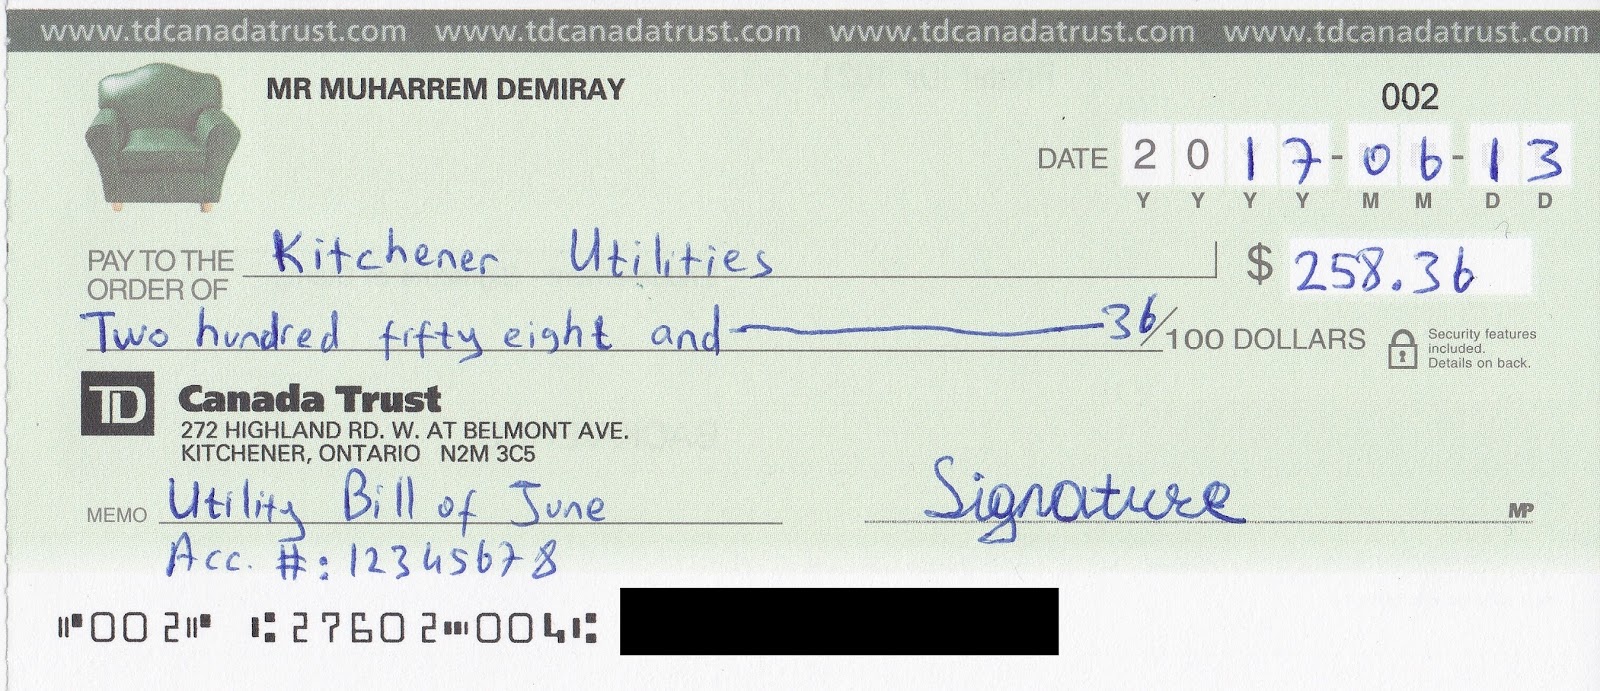 www.tdcanadatrust.com www.tdcanadatrust.com www.tdcanadatrust.com www.tdcanadatrust.com
MR MUHARREM DEMIRAY
002
DATE 2 0 1 7 - 0 6 - 1 3
Y Y Y Y M M D D
PAY TO THE ORDER OF Kitchener Utilities $ 258.36
Two hundred fifty eight and 36/100 DOLLARS
Security features
included.
Details on back.
TD Canada Trust
272 HIGHLAND RD. W. AT BELMONT AVE.
KITCHENER, ONTARIO N2M 3C5
MEMO Utility Bill of June
Signature MP
Acc. #: 12345678
⑈002⑈ ⑆27602⑉004⑆